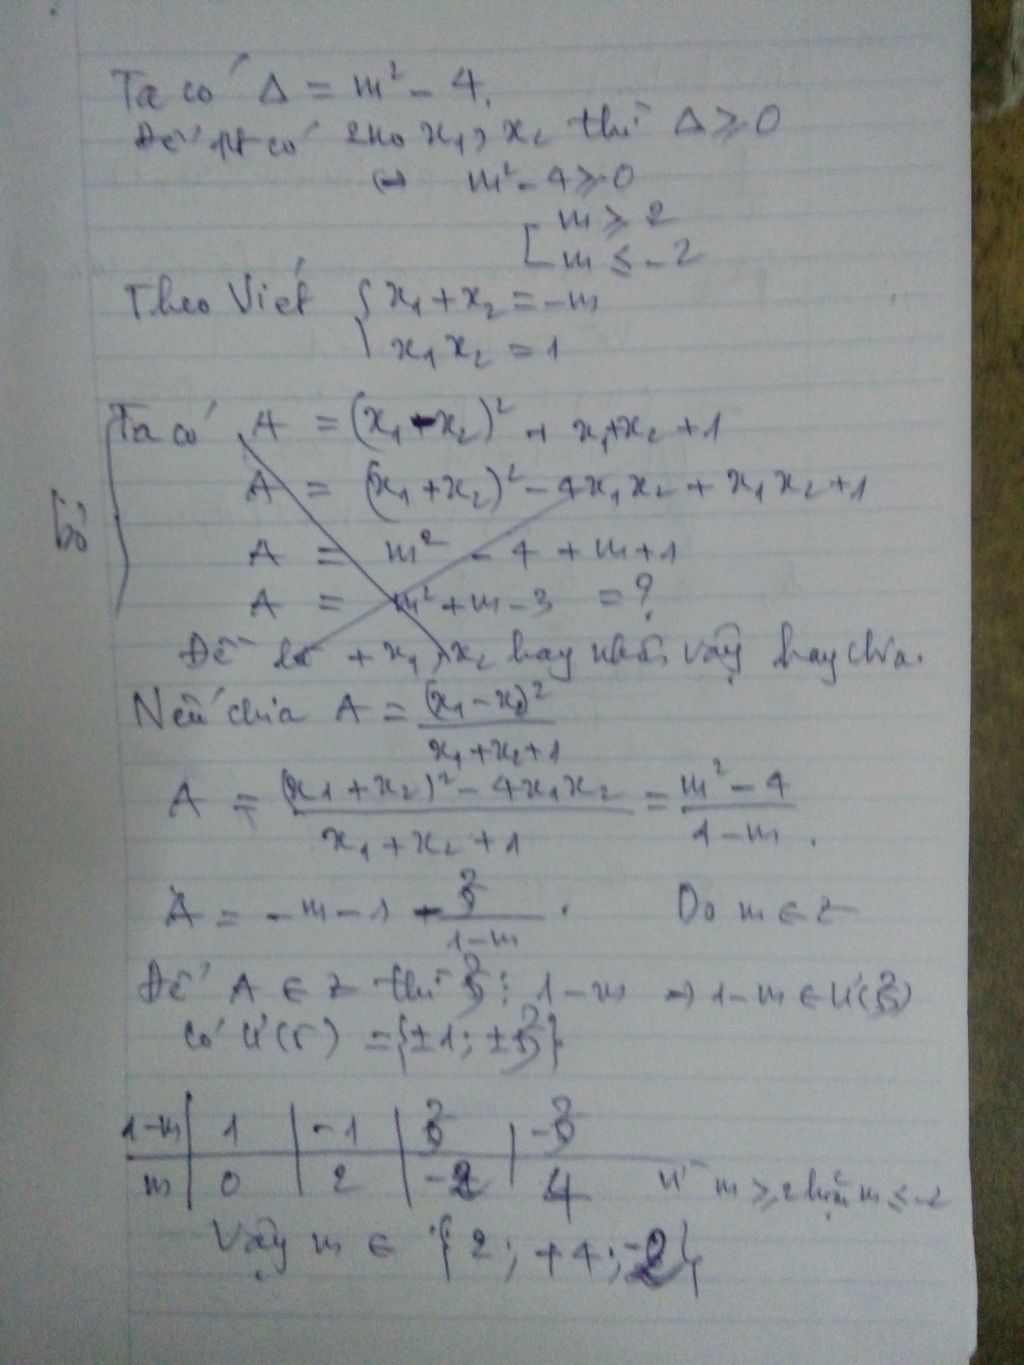 Ta có Δ = m² - 4.
Để pt có 2no x₁, x₂ thì Δ ≥ 0
⇔ m² - 4 ≥ 0
[ m ≥ 2
m ≤ -2
Theo Viét { x₁ + x₂ = -m
x₁ x₂ = 1
Ta có A = (x₁ - x₂)² + x₁+x₂ + 1
Bỏ
A = (x₁ + x₂)² - 4x₁x₂ + x₁x₂ + 1
A = m² - 4 + m + 1
A = m² + m - 3 = ?
Đề + x₁, x₂ hay nhân vậy hay chia.
Nếu chia A = (x₁ - x₂)² / x₁ + x₂ + 1
A = (x₁ + x₂)² - 4x₁x₂ / x₁ + x₂ + 1 = m² - 4 / 1 - m .
A = -m - 1 - 3 / 1 - m . Do m ∈ Z
Để A ∈ Z thì 3 ⋮ 1 - m → 1 - m ∈ Ư(3)
Có Ư(5) = {±1; ±3}
1-m | 1 | -1 | 3 | -3
m | 0 | 2 | -2 | 4 m ≥ 2 hoặc m ≤ -2
Vậy m ∈ {2; +4; -2}